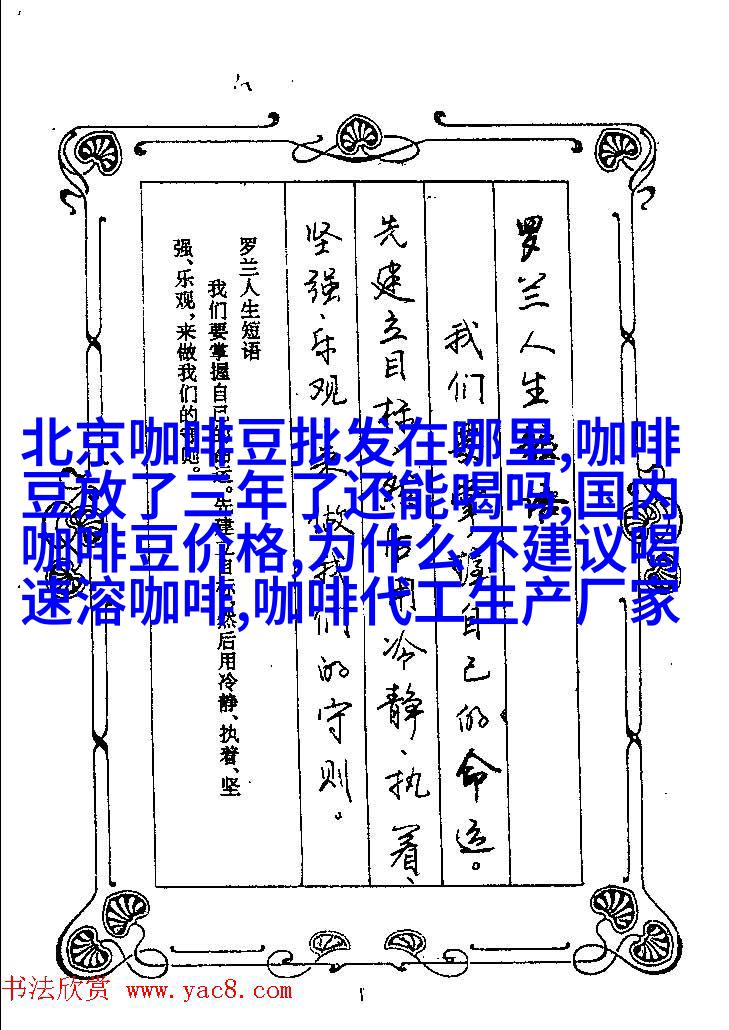 罗兰人生短语
我们要掌握自己的命运。
先建立目标、然后用冷静、执着、
坚强、乐观、来做我们的守则。
罗兰人生短语
我们要掌握自己的命运。先建立目标,然后用冷静、执着、坚
强、乐观,来做我们的守则。
北京咖啡豆批发在哪里,咖啡
豆放了三年了还能喝吗,国内
咖啡豆价格,为什么不建议喝
速溶咖啡,咖啡代工生产厂家
书法欣赏 www.yac8.com
1